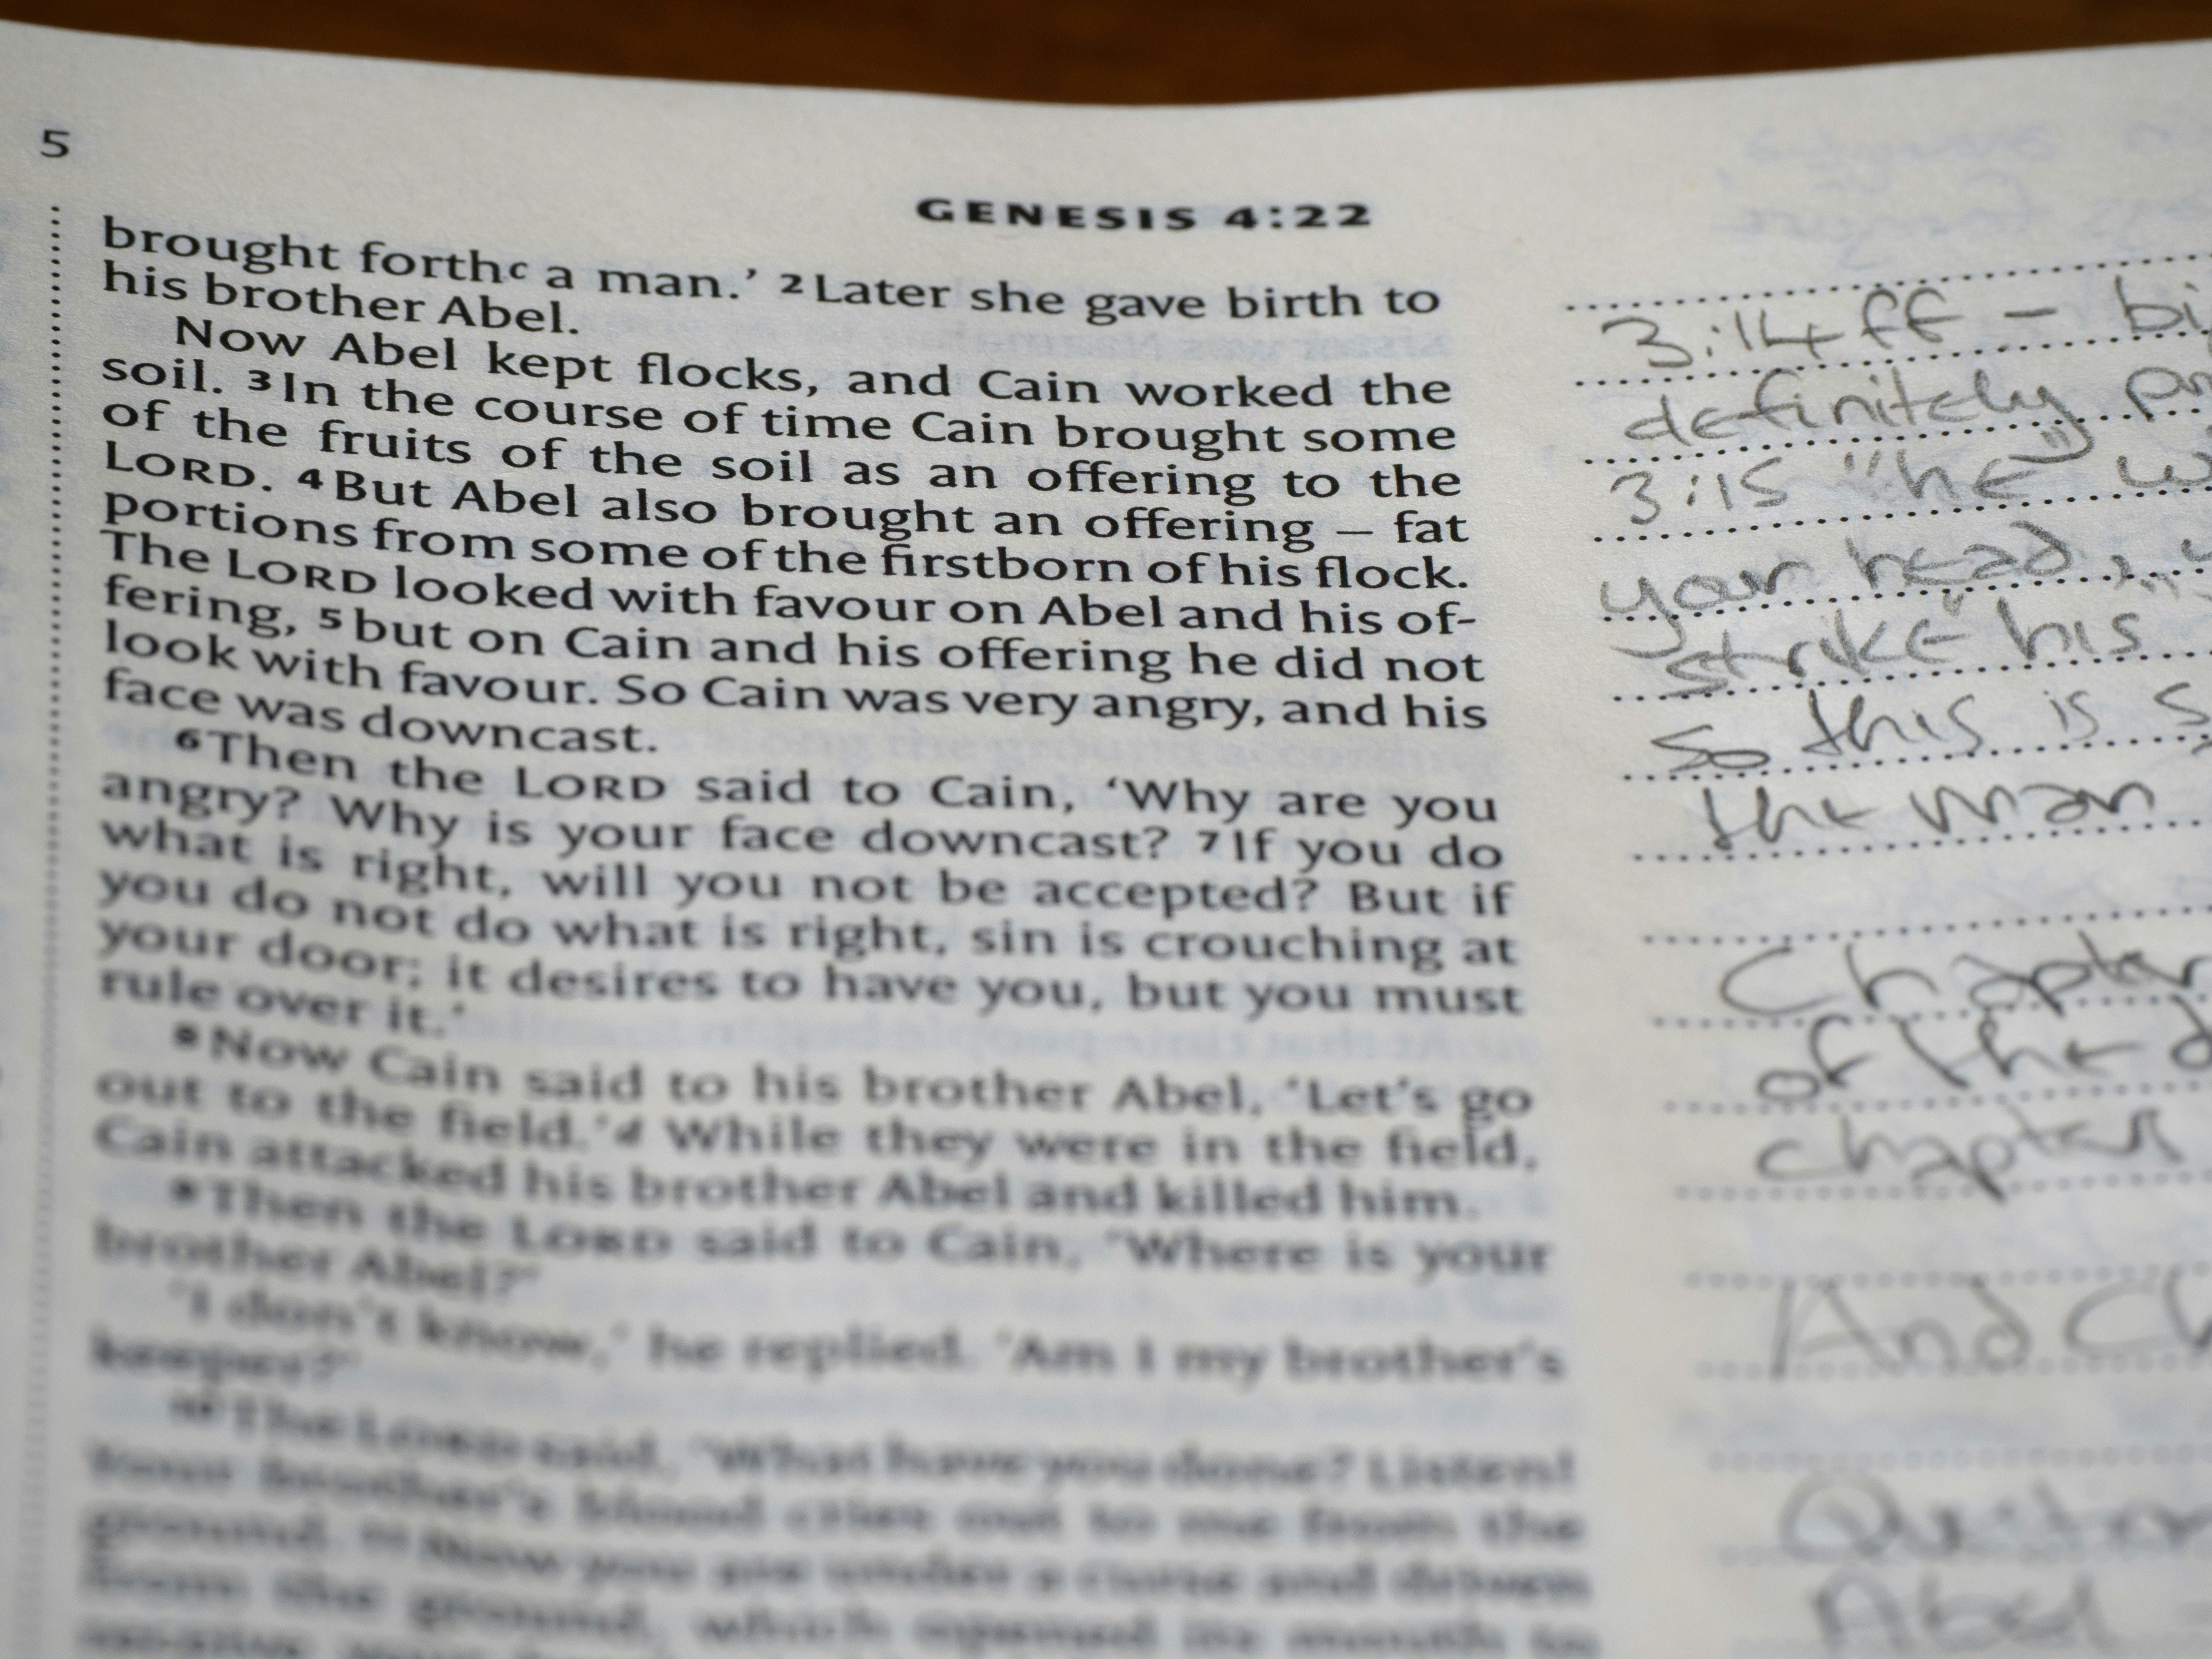 5
GENESIS 4:22
brought forthc a man.’ 2 Later she gave birth to
his brother Abel.
Now Abel kept flocks, and Cain worked the
soil. 3 In the course of time Cain brought some
of the fruits of the soil as an offering to the
LORD. 4 But Abel also brought an offering – fat
portions from some of the firstborn of his flock.
The LORD looked with favour on Abel and his of-
fering, 5 but on Cain and his offering he did not
look with favour. So Cain was very angry, and his
face was downcast.
6 Then the LORD said to Cain, ‘Why are you
angry? Why is your face downcast? 7 If you do
what is right, will you not be accepted? But if
you do not do what is right, sin is crouching at
your door; it desires to have you, but you must
rule over it.’
8 Now Cain said to his brother Abel, ‘Let’s go
out to the field.’d While they were in the field,
Cain attacked his brother Abel and killed him.
9 Then the LORD said to Cain, ‘Where is your
brother Abel?’
‘I don’t know,’ he replied. ‘Am I my brother’s
keeper?’
10 The LORD said, ‘What have you done? Listen!
Your brother’s blood cries out to me from the
ground. 11 Now you are under a curse and driven
from the ground, which opened its mouth to
3:14ff –
definitely
3:15 "he"
your head,
strike" his
so this is
the man
Chapter
of the
chapter
And
Abel